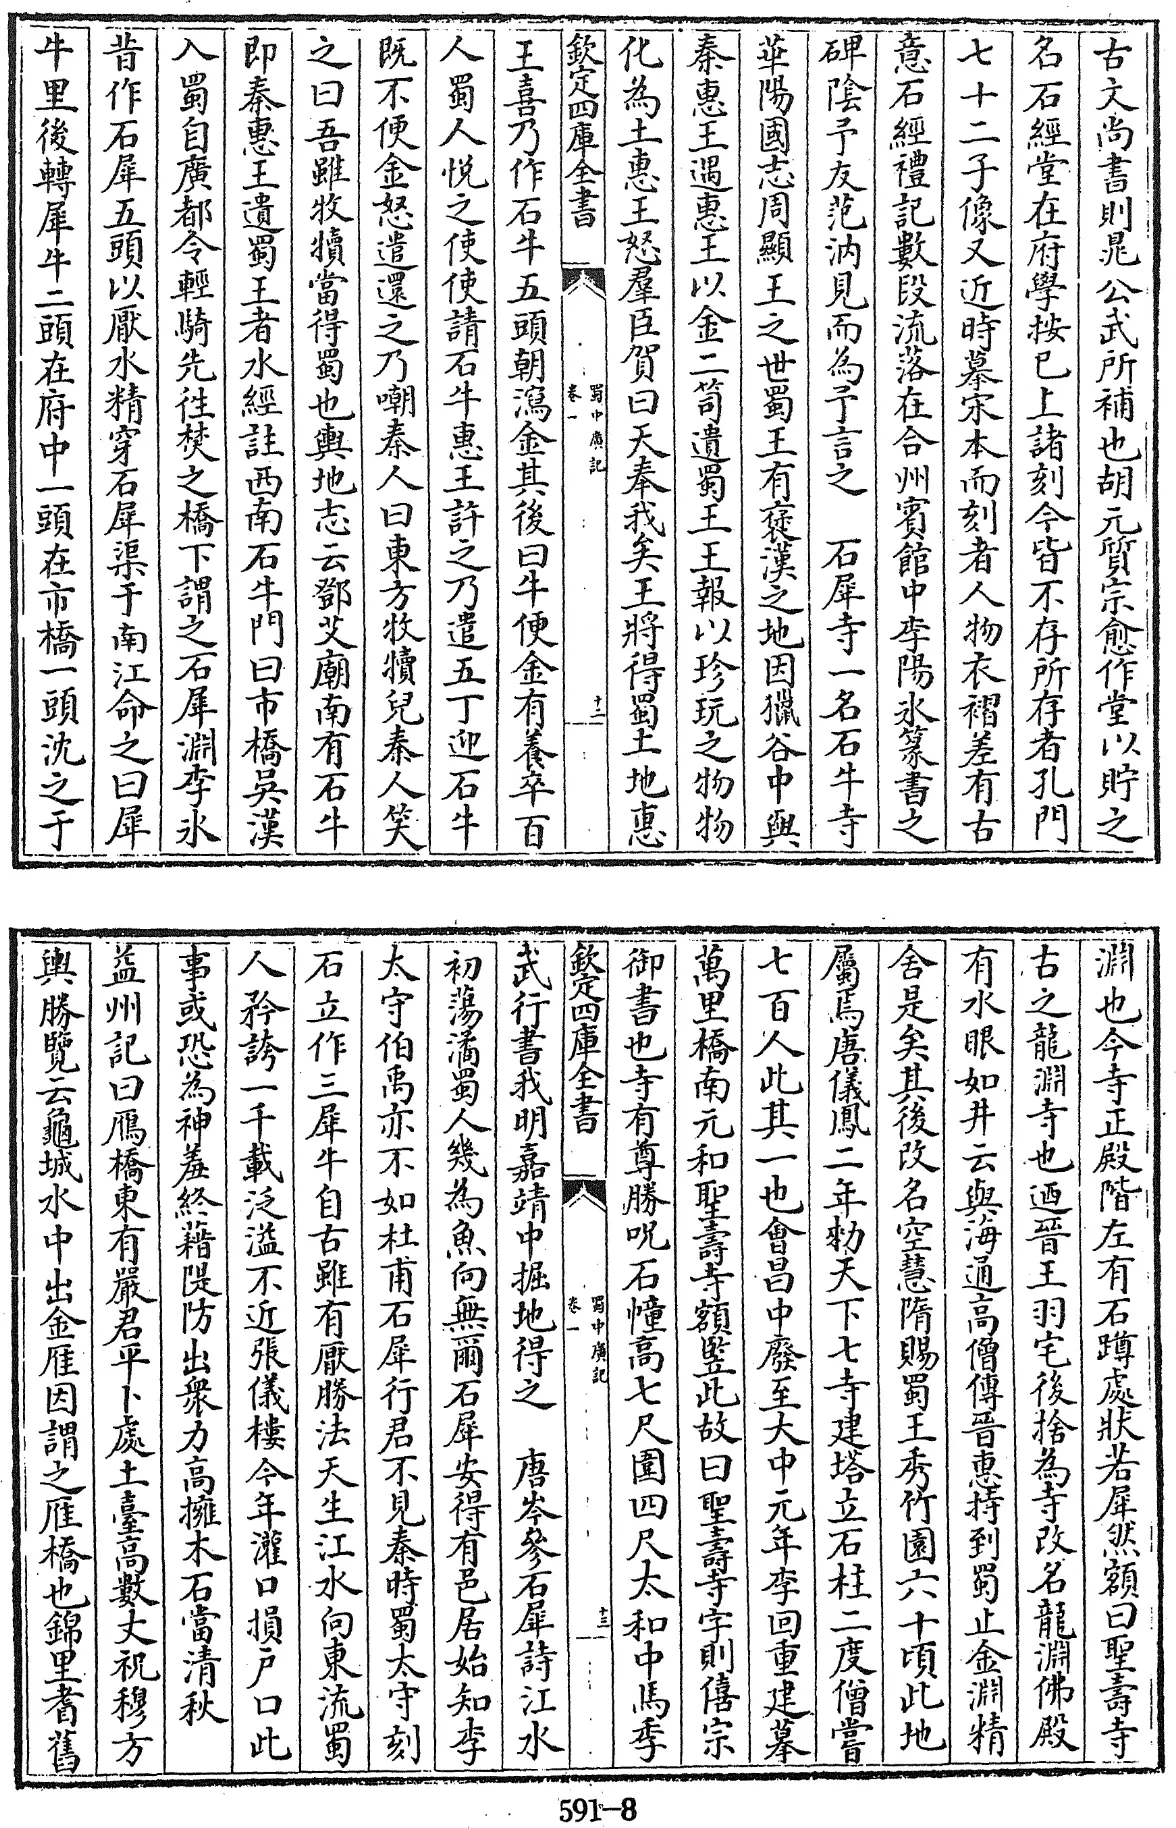 古文尚書則晁公武所補也胡元質宗愈作堂以貯之
名石經堂在府學按已上諸刻今皆不存所存者孔門
七十二子像又近時摹宋本而刻者人物衣褶差有古
意石經禮記數段流落在合州賓館中李陽冰篆書之
碑陰予友范汭見而為予言之　石犀寺一名石牛寺
華陽國志周顯王之世蜀王有褒漢之地因獵谷中與
秦惠王遇惠王以金二笥遺蜀王王報以珍玩之物物
化為土惠王怒羣臣賀曰天奉我矣王將得蜀土地惠
欽定四庫全書
蜀中廣記
卷一
十二
王喜乃作石牛五頭朝瀉金其後曰牛便金有養卒百
人蜀人悅之使使請石牛惠王許之乃遣五丁迎石牛
既不便金怒遣還之乃嘲秦人曰東方牧犢兒秦人笑
之曰吾雖牧犢當得蜀也輿地志云鄧艾廟南有石牛
即秦惠王遺蜀王者水經註西南石牛門曰市橋吳漢
入蜀自廣都令輕騎先往焚之橋下謂之石犀淵李冰
昔作石犀五頭以厭水精穿石犀渠于南江命之曰犀
牛里後轉犀牛二頭在府中一頭在市橋一頭沈之于
淵也今寺正殿階左有石蹲處狀若犀然額曰聖壽寺
古之龍淵寺也迺晉王羽宅後捨為寺改名龍淵佛殿
有水眼如井云與海通高僧傳晉惠持到蜀止金淵精
舍是矣其後改名空慧隋賜蜀王秀竹園六十頃此地
屬焉唐儀鳳二年勑天下七寺建塔立石柱二度僧嘗
七百人此其一也會昌中廢至大中元年李回重建摹
萬里橋南元和聖壽寺額豎此故曰聖壽寺字則僖宗
御書也寺有尊勝呪石幢高七尺圍四尺太和中馬季
欽定四庫全書
蜀中廣記
卷一
十三
武行書我明嘉靖中掘地得之　唐岑參石犀詩江水
初蕩潏蜀人幾為魚向無爾石犀安得有邑居始知李
太守伯禹亦不如杜甫石犀行君不見秦時蜀太守刻
石立作三犀牛自古雖有厭勝法天生江水向東流蜀
人矜誇一千載泛溢不近張儀樓今年灌口損戶口此
事或恐為神羞終藉隄防出衆力高擁木石當清秋
益州記曰鴈橋東有嚴君平卜處土臺高數丈祝穆方
輿勝覽云龜城水中出金雁因謂之雁橋也錦里耆舊
591-8